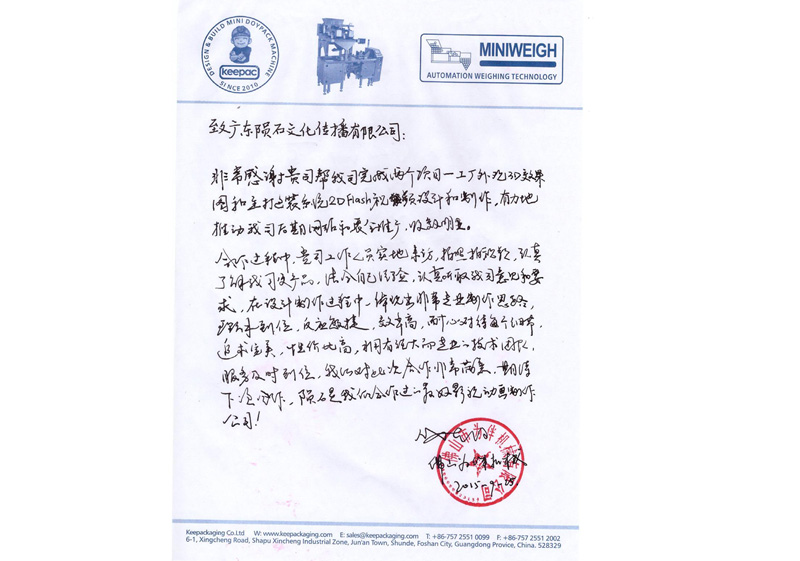 DESIGN & BUILD MINI DOYPACK MACHINE
keepac
SINCE 2010
MINIWEIGH
AUTOMATION WEIGHING TECHNOLOGY
致广东陨石文化传播有限公司:
非常感谢贵司帮我司完成两个项目—工厂外观3D效果
图和主打包装系统2D Flash视频设计和制作,有力地
推动我司后期网站和展会推广,收效明显。
合作过程中,贵司工作人员实地来访,拍照拍视频,认真
了解我司及产品,结合自己经验,认真听取我司意思和要
求,在设计制作过程中,体现出非常专业制作思路,
到位,反应敏捷,效率高,耐心对待每个细节,
追求完美,性价比高,拥有强大而专业的技术团队,
服务及时到位,我们对此次合作非常满意,期待
下次合作,陨石是我们合作过的最好影视动画制作
公司!
佛山市为伴机械有限公司
2015-9-25
Keepackaging Co.Ltd W: www.keepackaging.com E: sales@keepackaging.com T: +86-757 2551 0099 F: +86-757 2551 2002
6-1, Xingcheng Road, Shapu Xincheng Industrial Zone, Jun'an Town, Shunde, Foshan City, Guangdong Provice, China. 528329